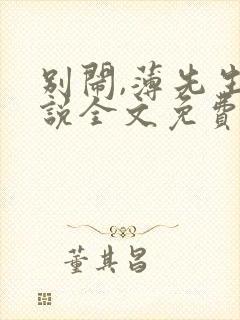 別鬧,薄先生
說全文免費
董其昌